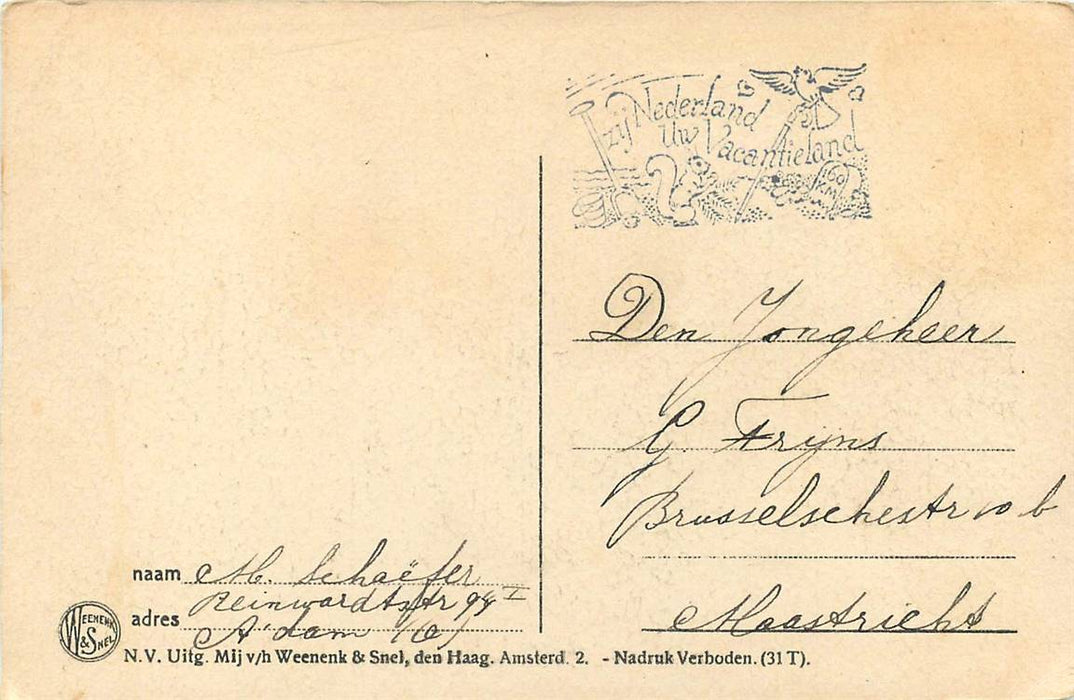 zij Nederland
Uw Vacantieland
160
KM
Den Jongeheer
G. Frijns
Brusselschestr 10 b
Maastricht
naam M. Schaëfer
Reinwardtstr 94 I
adres A'dam (O)
WEENENK
& SNEL
N.V. Uitg. Mij v/h Weenenk & Snel, den Haag. Amsterd. 2. - Nadruk Verboden. (31 T).